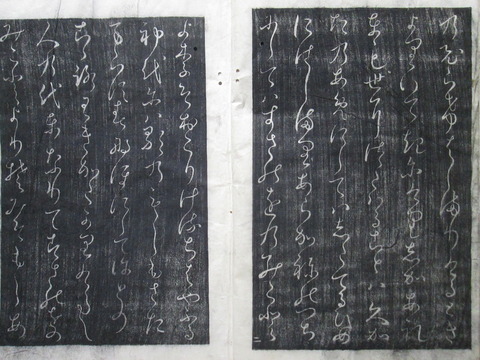 のひらけはしまりけるとき
よりいてきにけりしかあれ
とも世につたはることは久か
たのあめにしてはしたてるひめ
にはしまりあらかねのつち
にしてはすさのをのみこと
よりそおこりけるちはやふる
神代にはうたのもしもさた
まらすすなほにしてことの
こゝろわきかたかりけらし
人の代となりてすさのをの
みことよりそみそもしあ